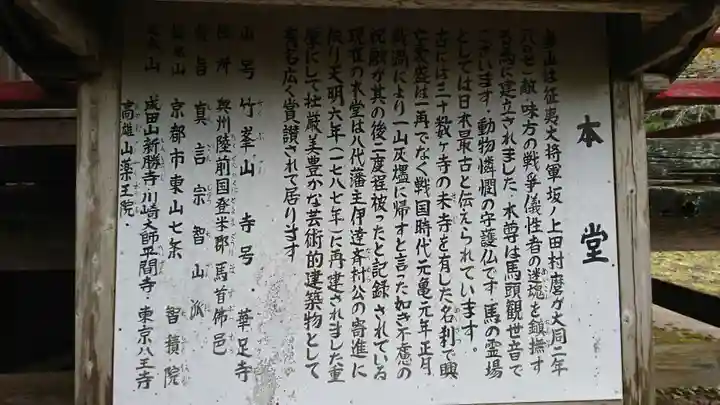 本堂
当山は征夷大将軍坂ノ上田村麿が大同二年
(八〇七)敵、味方の戦争儀性者の迷魂を鎮撫す
る為に建立されました、本尊は馬頭観世音で
ございます・動物憐憫の守護仏です・馬の霊場
としては日本最古と伝えられています。
古には三十数ヶ寺の末寺を有した名刹で興
亡衰盛は一再でなく戦国時代元亀元年正月
戦渦により一山灰燼に帰すと言った如き不慮の
災厄が其の後二度程被ったと記録されている
現在の本堂は八代藩主伊達斉村公の寄進に
依り天明六年(一七八七年)に再建されました重
厚にして壮厳美豊かな芸術的建築物として
実も広く賞讃されて居ります
山号 竹峯山 寺号・華足寺
住所 奥州陸前国登米郡馬首佛邑
宗旨 真言宗智山派
総本山 京都市東山七条 智積院
大本山 成田山新勝寺・川崎大師平間寺・東京八王寺
高雄山薬王院・